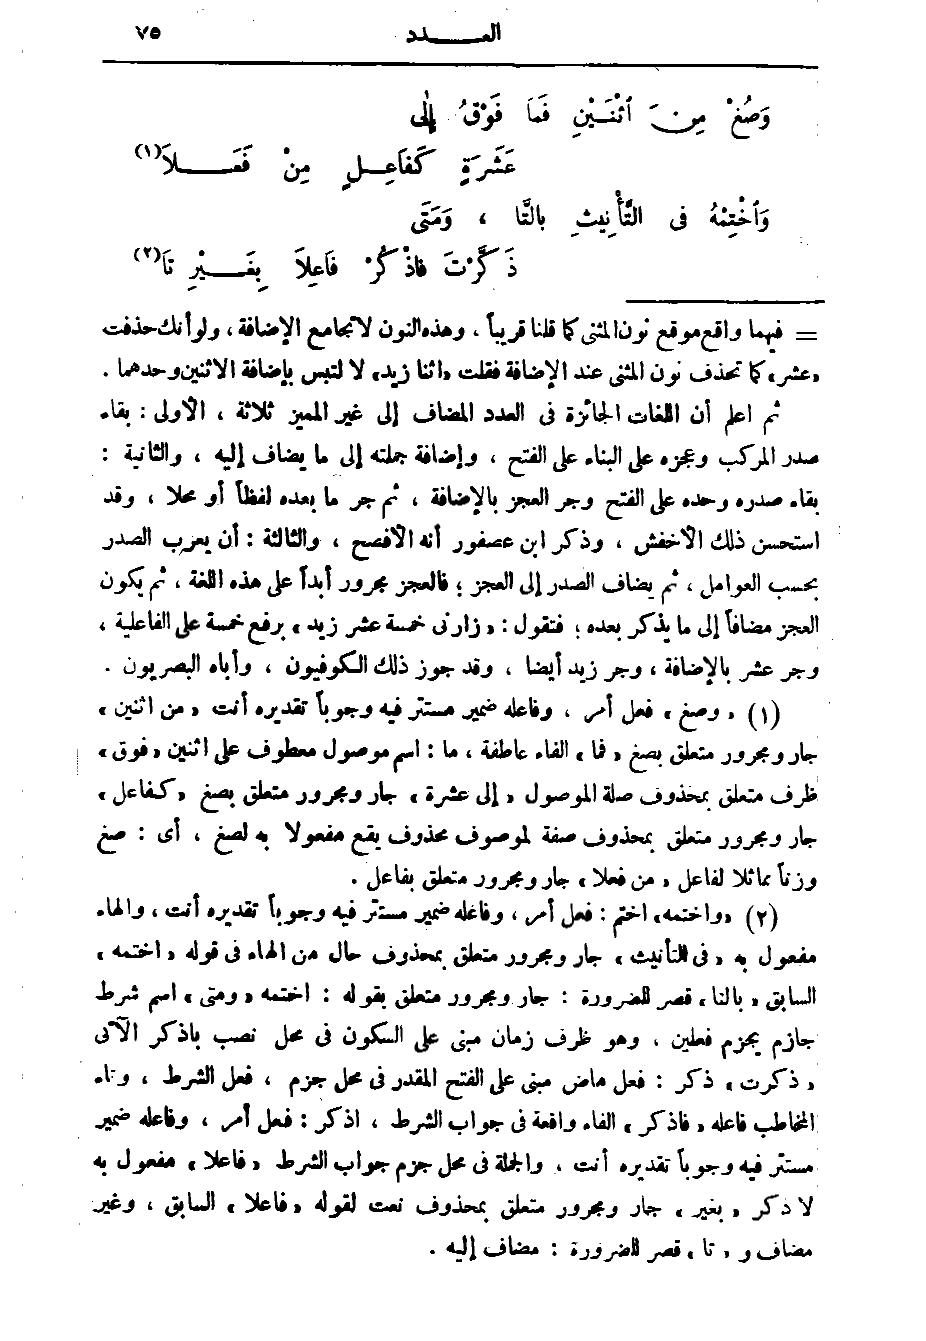 العـــــدد ٧٥
وَصُغْ مِنَ ٱثْنَيْنِ فَمَا فَوْقُ إِلَى
عَشَرَةٍ كَفَاعِـلٍ مِنْ فَعَـــلاَ(١)
وَٱخْتِمْهُ فى التَّأْنِيثِ بالتَّا ، وَمَتَى
ذَكَّرْتَ فَاذْكُرْ فَاعِلاً بِغَـــيْرِ تَا(٢)
= فيهما واقع موقع نون المثنى كما قلنا قريباً ، وهذه النون لا تجامع الإضافة ، ولو أنك حذفت
« عشر » كما تحذف نون المثنى عند الإضافة فقلت « اثنا زيد » لا لتبس بإضافة الاثنين وحدهما .
ثم اعلم أن اللغات الجائزة فى العدد المضاف إلى غير المميز ثلاثة ، الأولى : بقاء
صدر المركب وعجزه على البناء على الفتح ، وإضافة جملته إلى ما يضاف إليه ، والثانية :
بقاء صدره وحده على الفتح وجر العجز بالإضافة ، ثم جر ما بعده لفظاً أو محلا ، وقد
استحسن ذلك الأخفش ، وذكر ابن عصفور أنه الأفصح ، والثالثة : أن يعرب الصدر
بحسب العوامل ، ثم يضاف الصدر إلى العجز ؛ فالعجز مجرور أبداً على هذه اللغة ، ثم يكون
العجز مضافاً إلى ما يذكر بعده ؛ فتقول : « زارنى خمسة عشر زيد » برفع خمسة على الفاعلية ،
وجر عشر بالإضافة ، وجر زيد أيضا ، وقد جوز ذلك الكوفيون ، وأباه البصريون .
(١) « وصغ » فعل أمر ، وفاعله ضمير مستتر فيه وجوباً تقديره أنت « من اثنين »
جار ومجرور متعلق بصغ « فما » الفاء عاطفة ، ما : اسم موصول معطوف على اثنين « فوق »
ظرف متعلق بمحذوف صلة الموصول « إلى عشرة » جار ومجرور متعلق بصغ « كفاعل »
جار ومجرور متعلق بمحذوف صفة لموصوف محذوف يقع مفعولا به لصغ ، أى : صغ
وزناً مماثلا لفاعل « من فعلا » جار ومجرور متعلق بفاعل .
(٢) « واختمه » اختم : فعل أمر ، وفاعله ضمير مستتر فيه وجوباً تقديره أنت ، والهاء
مفعول به « فى التأنيث » جار ومجرور متعلق بمحذوف حال من الهاء فى قوله « اختمه »
السابق « بالتا » قصر للضرورة : جار ومجرور متعلق بقوله : اختمه « ومتى » اسم شرط
جازم يجزم فعلين ، وهو ظرف زمان مبنى على السكون فى محل نصب باذكر الآتى
« ذكرت » ذكر : فعل ماض مبنى على الفتح المقدر فى محل جزم ، فعل الشرط ، وتاء
المخاطب فاعله « فاذكر » الفاء واقعة فى جواب الشرط ، اذكر : فعل أمر ، وفاعله ضمير
مستتر فيه وجوباً تقديره أنت ، والجملة فى محل جزم جواب الشرط « فاعلا » مفعول به
لاذكر « بغير » جار ومجرور متعلق بمحذوف نعت لقوله « فاعلا » السابق ، وغير
مضاف و « تا » قصر للضرورة : مضاف إليه .